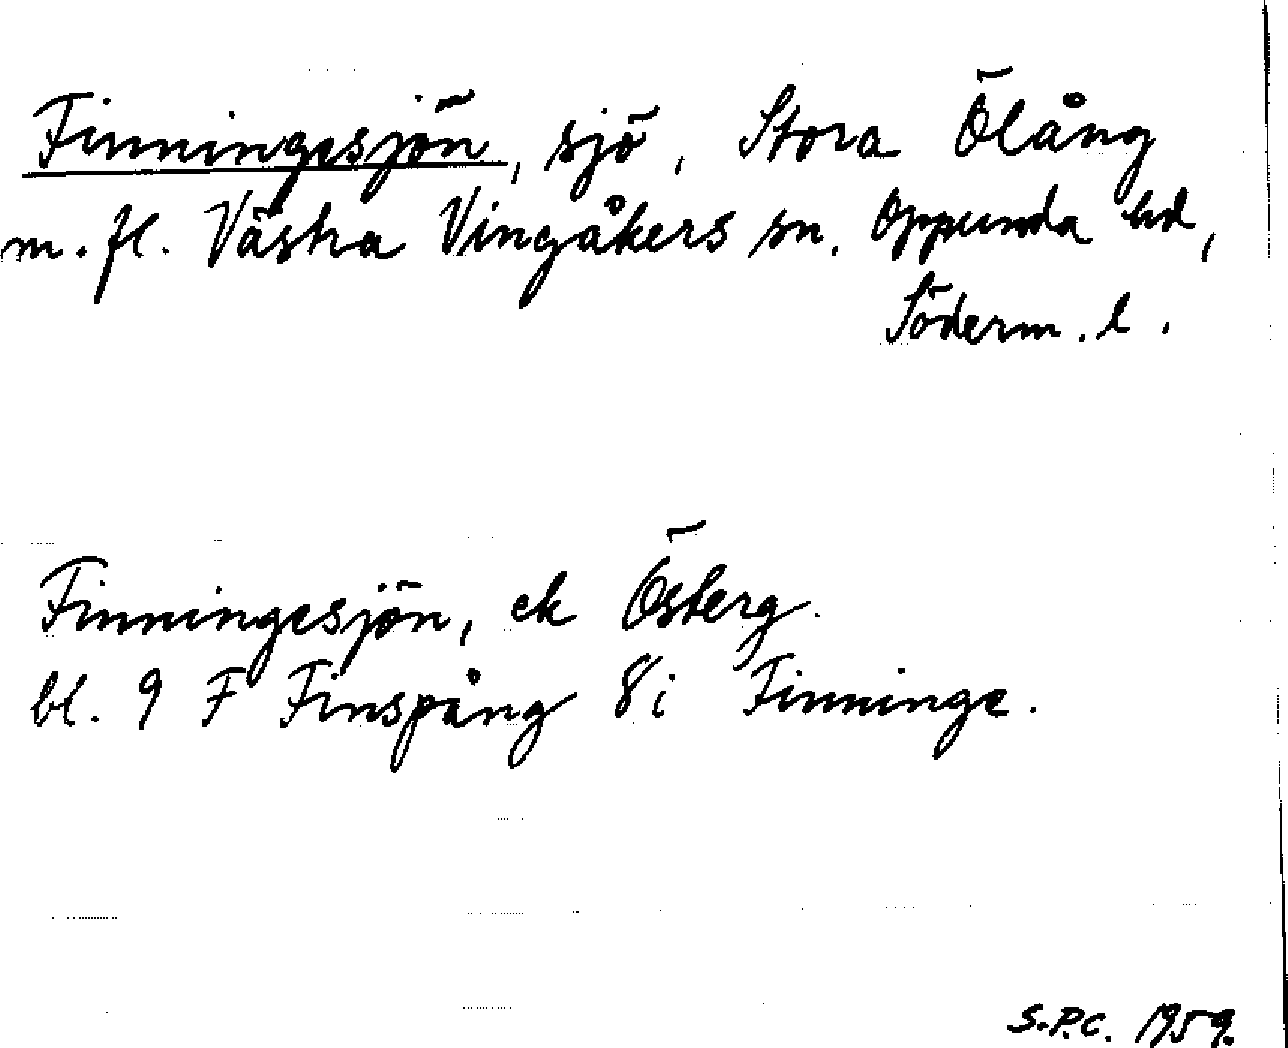 Finningesjön, sjö, Stora Ölång
m. fl. Västra Vingåkers sn. Oppunda hd,
Söderm. l.
Finningesjön, ek Österg.
bl. 9 F Finspång 8 i Finninge.
S.P.C. 1959.